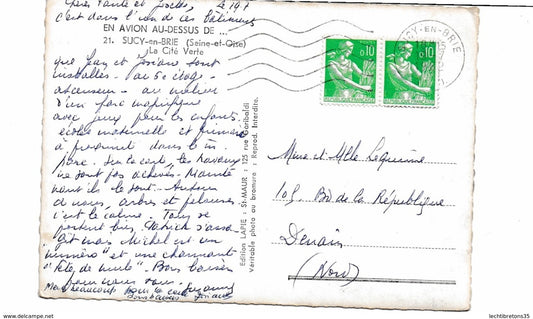 c'est dans l'un de ces bâtiments
EN AVION AU-DESSUS DE ...
21. SUCY-en-BRIE (Seine-et-Oise)
La Cité Verte
que Guy et Josiane sont
installés. Au 5e étage
ascenseur. au milieu
d'un parc magnifique
avec jeux pour les enfants,
écoles maternelle et primaire
à proximité dans le
parc. Sur la carte, les travaux
ne sont pas achevés. Mainte
nant ils le sont. Autour
de nous, arbres et pelouses
c'est le calme. Tony se
porte bien, Patrick s'assa
git mais Michel est un
numéro" et une charmante
"tête de mule". Bons baisers
pour vous tous.
Merci beaucoup pour la carte
Bons baisers Josiane
Edition LAPIE : St-MAUR : 125 rue Garibaldi
Véritable photo au bromure : Reprod. Interdite.
0,10
0,10
SUCY-EN-BRIE
Mme et Mlle
105 Bd de la République
Denain
(Nord)
www.delcampe.net
lechtibretons35